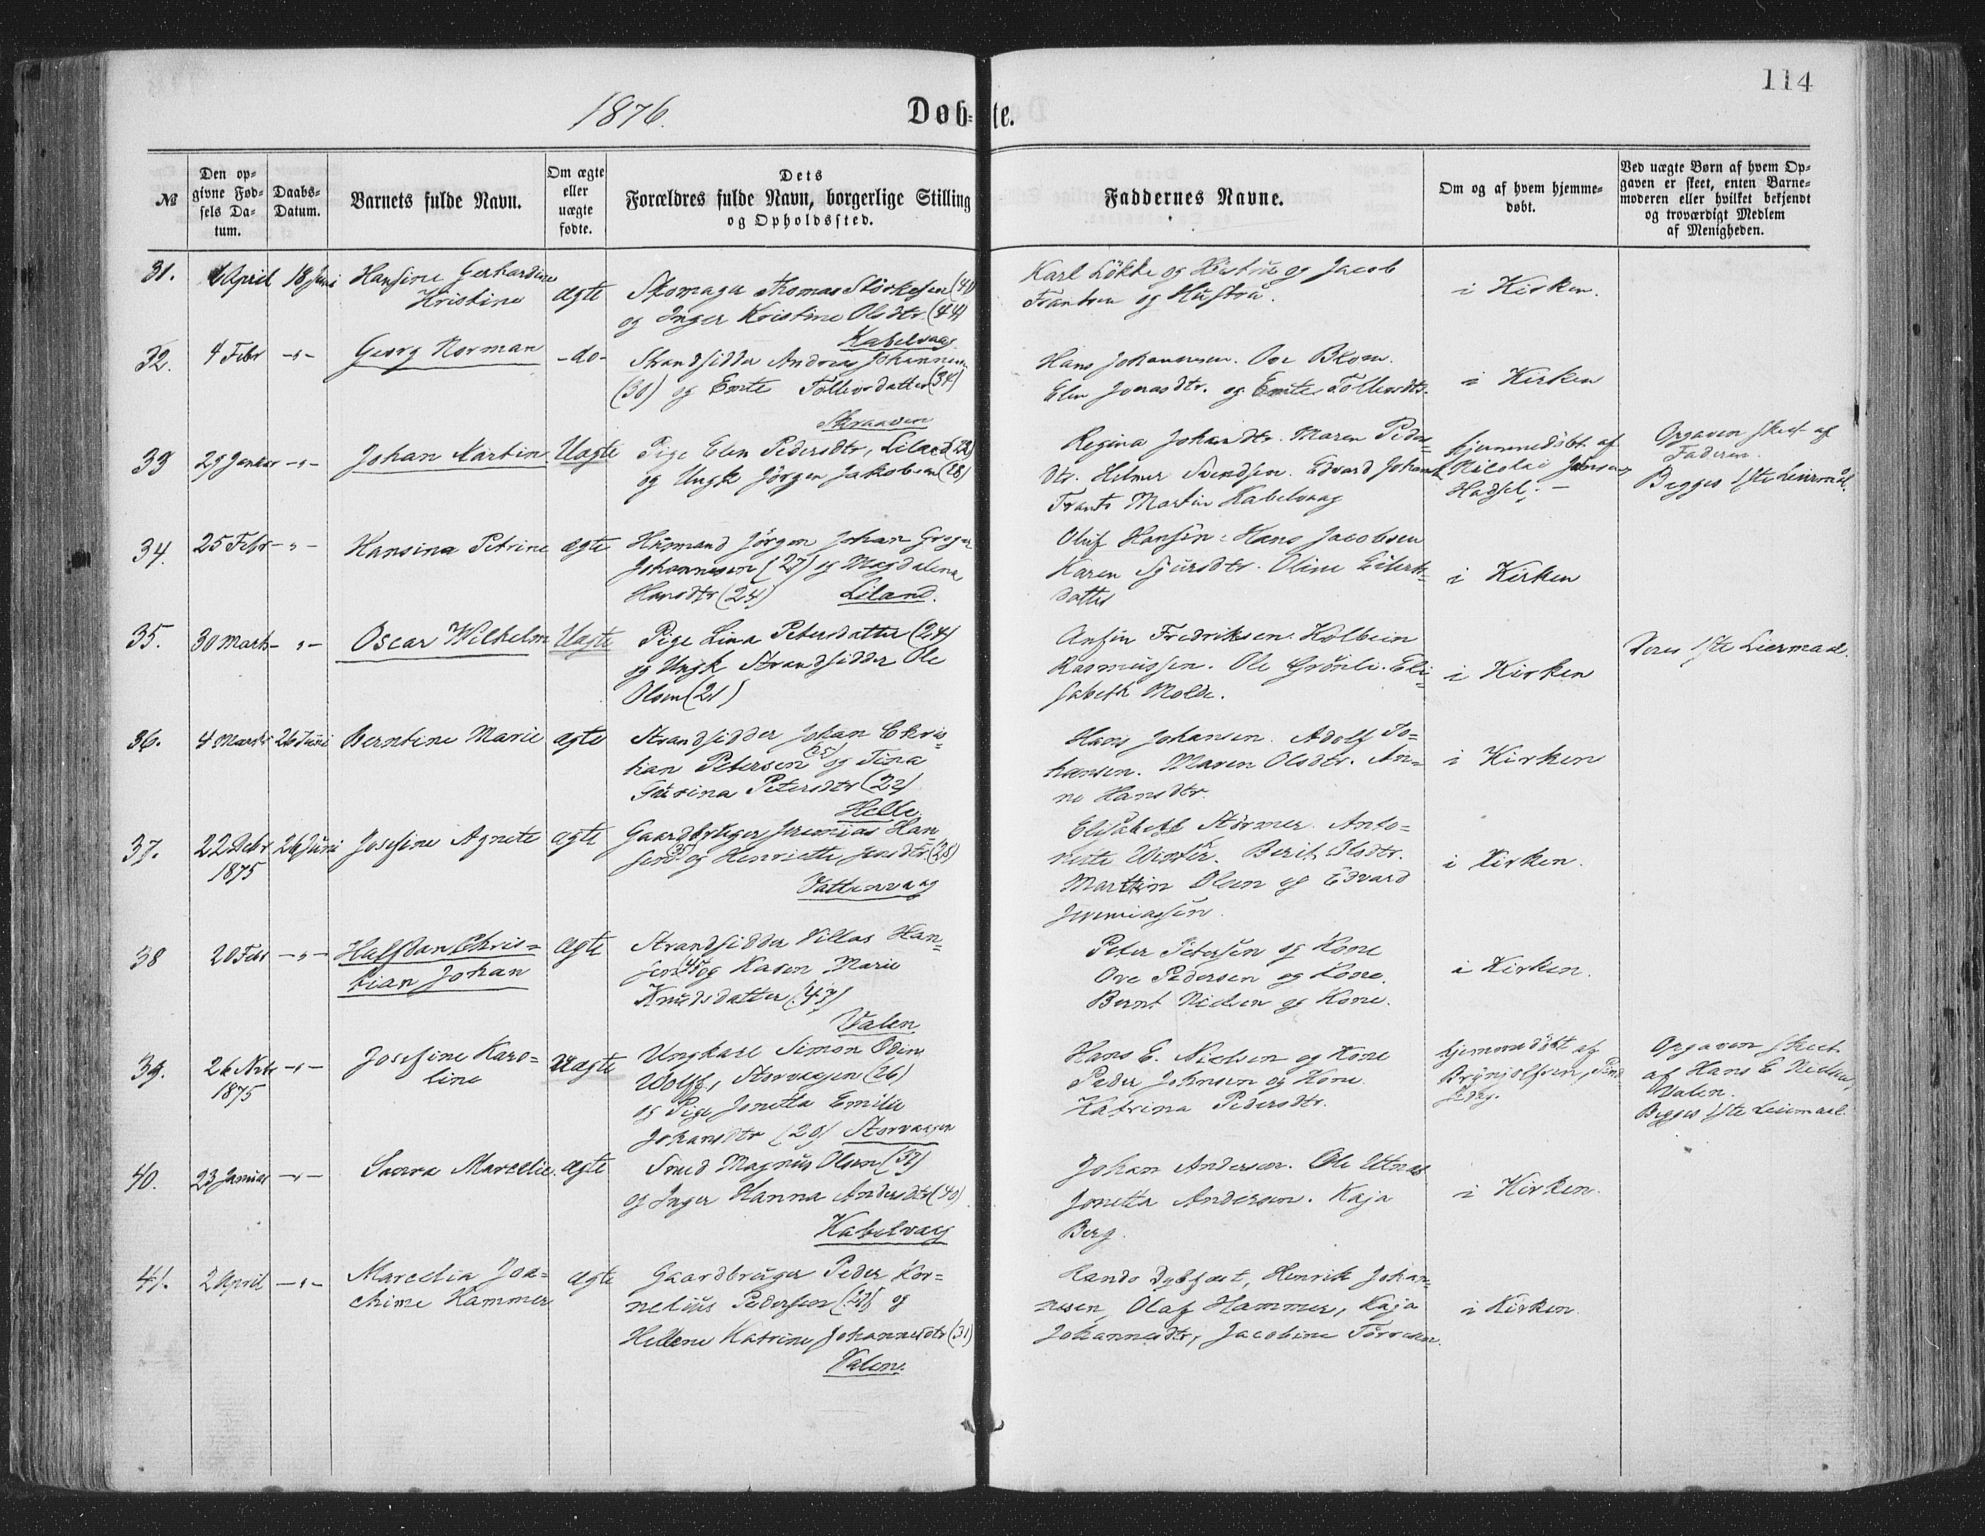 114
1876.
Døb-te.
№
Den op-
givne Fød-
sels Da-
tum.
Daabs-
Datum.
Barnets fulde Navn.
Om ægte
eller
uægte
fødte.
Dets
Forældres fulde Navn, borgerlige Stilling
og Opholdssted.
Faddernes Navne.
Om og af hvem hjemme-
døbt.
Ved uægte Børn af hvem Op-
gaven er skeet, enten Barne-
moderen eller hvilket bekjendt
og troværdigt Medlem
af Menigheden.
31. April 18 Juni Hansine Gerhardine
Kristine
ægte
Skomager Thomas Størkesen (41)
og Inger Kristine Olsdtr (44)
Kabelvaag
Karl Løkke og Hustru og Jacob
Frantsen og Hustru.
i Kirken.
32. 4 Febr -"- Georg Norman -do-
Strandsidder Andreas Johannesen
(30) og Emte Tollevsdatter (34)
Skraaven
Hans Johannesen. Ove Blom.
Elen Jonasdtr. og Emte Tollevsdtr.
i Kirken
33 29 Januar -"- Johan Martin Uægte
Pige Elen Pedersdtr, Liland (22)
og Ungk Jørgen Jakobsen (28)
Regina Johandtr. Maren Peders-
dtr. Helmer Svendsen. Edvard Johans
Frants Martin Kabelvaag
hjemmedøbt af
Nikolai Jensen
Hadsel. -
Opgaven skeet af
Faderen
Begges 1ste Leiermål.
34. 25 Febr -"- Hansina Petrine ægte
Husmand Jørgen Johan Greger
Johannesen (27) og Magdalena
Hansdtr (24) Liland.
Oluf Hansen. Hans Jacobsen
Karen Sjursdtr. Oline Eilerts-
datter
i Kirken
35. 30 Marts -"- Oscar Wilhelm Uægte
Pige Lina Petersdatter (24)
og Ungk Strandsidder Ole
Olsen (21)
Anfin Fredriksen. Holbein
Rasmussen. Ole Grönli. Eli-
sabeth Molde.
i Kirken
Deres 1ste Leiermaal.
36. 4 Marts 26 Juni Berntine Marie ægte
Strandsidder Johan Chris-
tian Petersen (25) og Tina
Katrina Petersdtr (22)
Helle
Hans Johansen. Adolf Jo-
hansen. Maren Olsdtr. An-
ne Hansdtr.
i Kirken
37. 22 Debr 1875 26 Juni Josefine Agnete ægte
Gaardbruger Jeremias Han-
sen og Henriette Jensdtr (25)
Vattervaag
Elisabeth Størmer. Anto-
nette Winter. Berit Olsdtr.
Martin Olsen og Edvard
Jeremiassen.
i Kirken.
38 20 Febr -"- Halfdan Chris-
tian Johan
ægte
Strandsidder Villas Han-
sen (45) og Karen Marie
Knudsdatter (43)
Valen
Peter Petersen og Kone
Ove Pedersen og Kone.
Bernt Nielsen og Kone.
i Kirken.
39. 26 Nvbr 1875 -"- Josefine Karo-
line
uægte
Ungkarl Simon Odin
Wolff, Storvaagen (26)
og Pige Jonetta Emilie
Johansdtr (20) Storvaagen
Hans E. Nielsen og Kone
Peder Johnsen og Kone
Katrina Pedersdtr.
hjemmedøbt af
Brynjolfsen,
Opgaven skeet
af Hans E Nielsen,
Valen.
Begges 1ste Leiermaal.
40. 23 Januar -"- Sanra Marcelie ægte
Smed Magnus Olsen (32)
og Inger Hanna Andersdtr (40)
Kabelvaag
Johan Andersen. Ole Utnes
Jonetta Andersen. Kaja
Berg.
i Kirken.
41. 2 April -"- Marcelia Joa-
chime Hammer
ægte
Gaardbruger Peder Kor-
nelius Pedersen (28) og
Hellene Katrine Johannesdtr (31)
Valen.
Rando Dybfest, Henrik Johan-
nesen, Olaf Hammer, Kaja
Johannesdtr, Jacobine Torresen.
i Kirken.